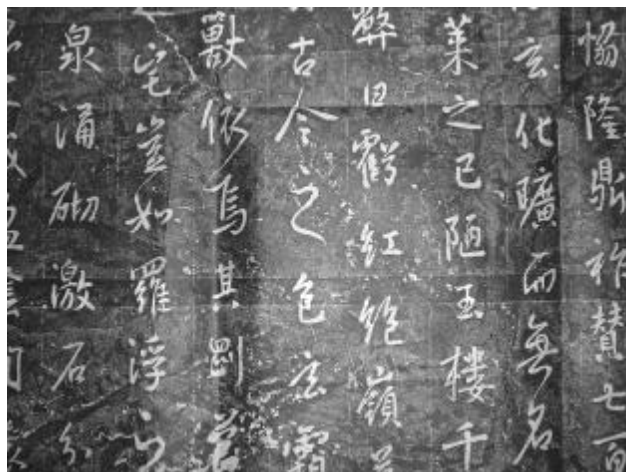 協隆鼎祚賛七百
玄化曠而無名
萊之已陋玉樓千
弊日虧紅絶嶺
古今之色玄霜
獸依焉其剛節
宅豈如羅浮之
泉涌砌激石分